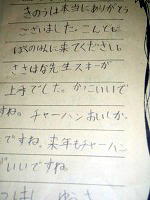 きのうは本当にありがとう
ございました。こんどは
ぼくのほんに来てください。
ささはな先生スキーが
上手でした。かっこいいで
すね。チャーハンおいしか
ですね。来年もチャーハン
がいいですね。